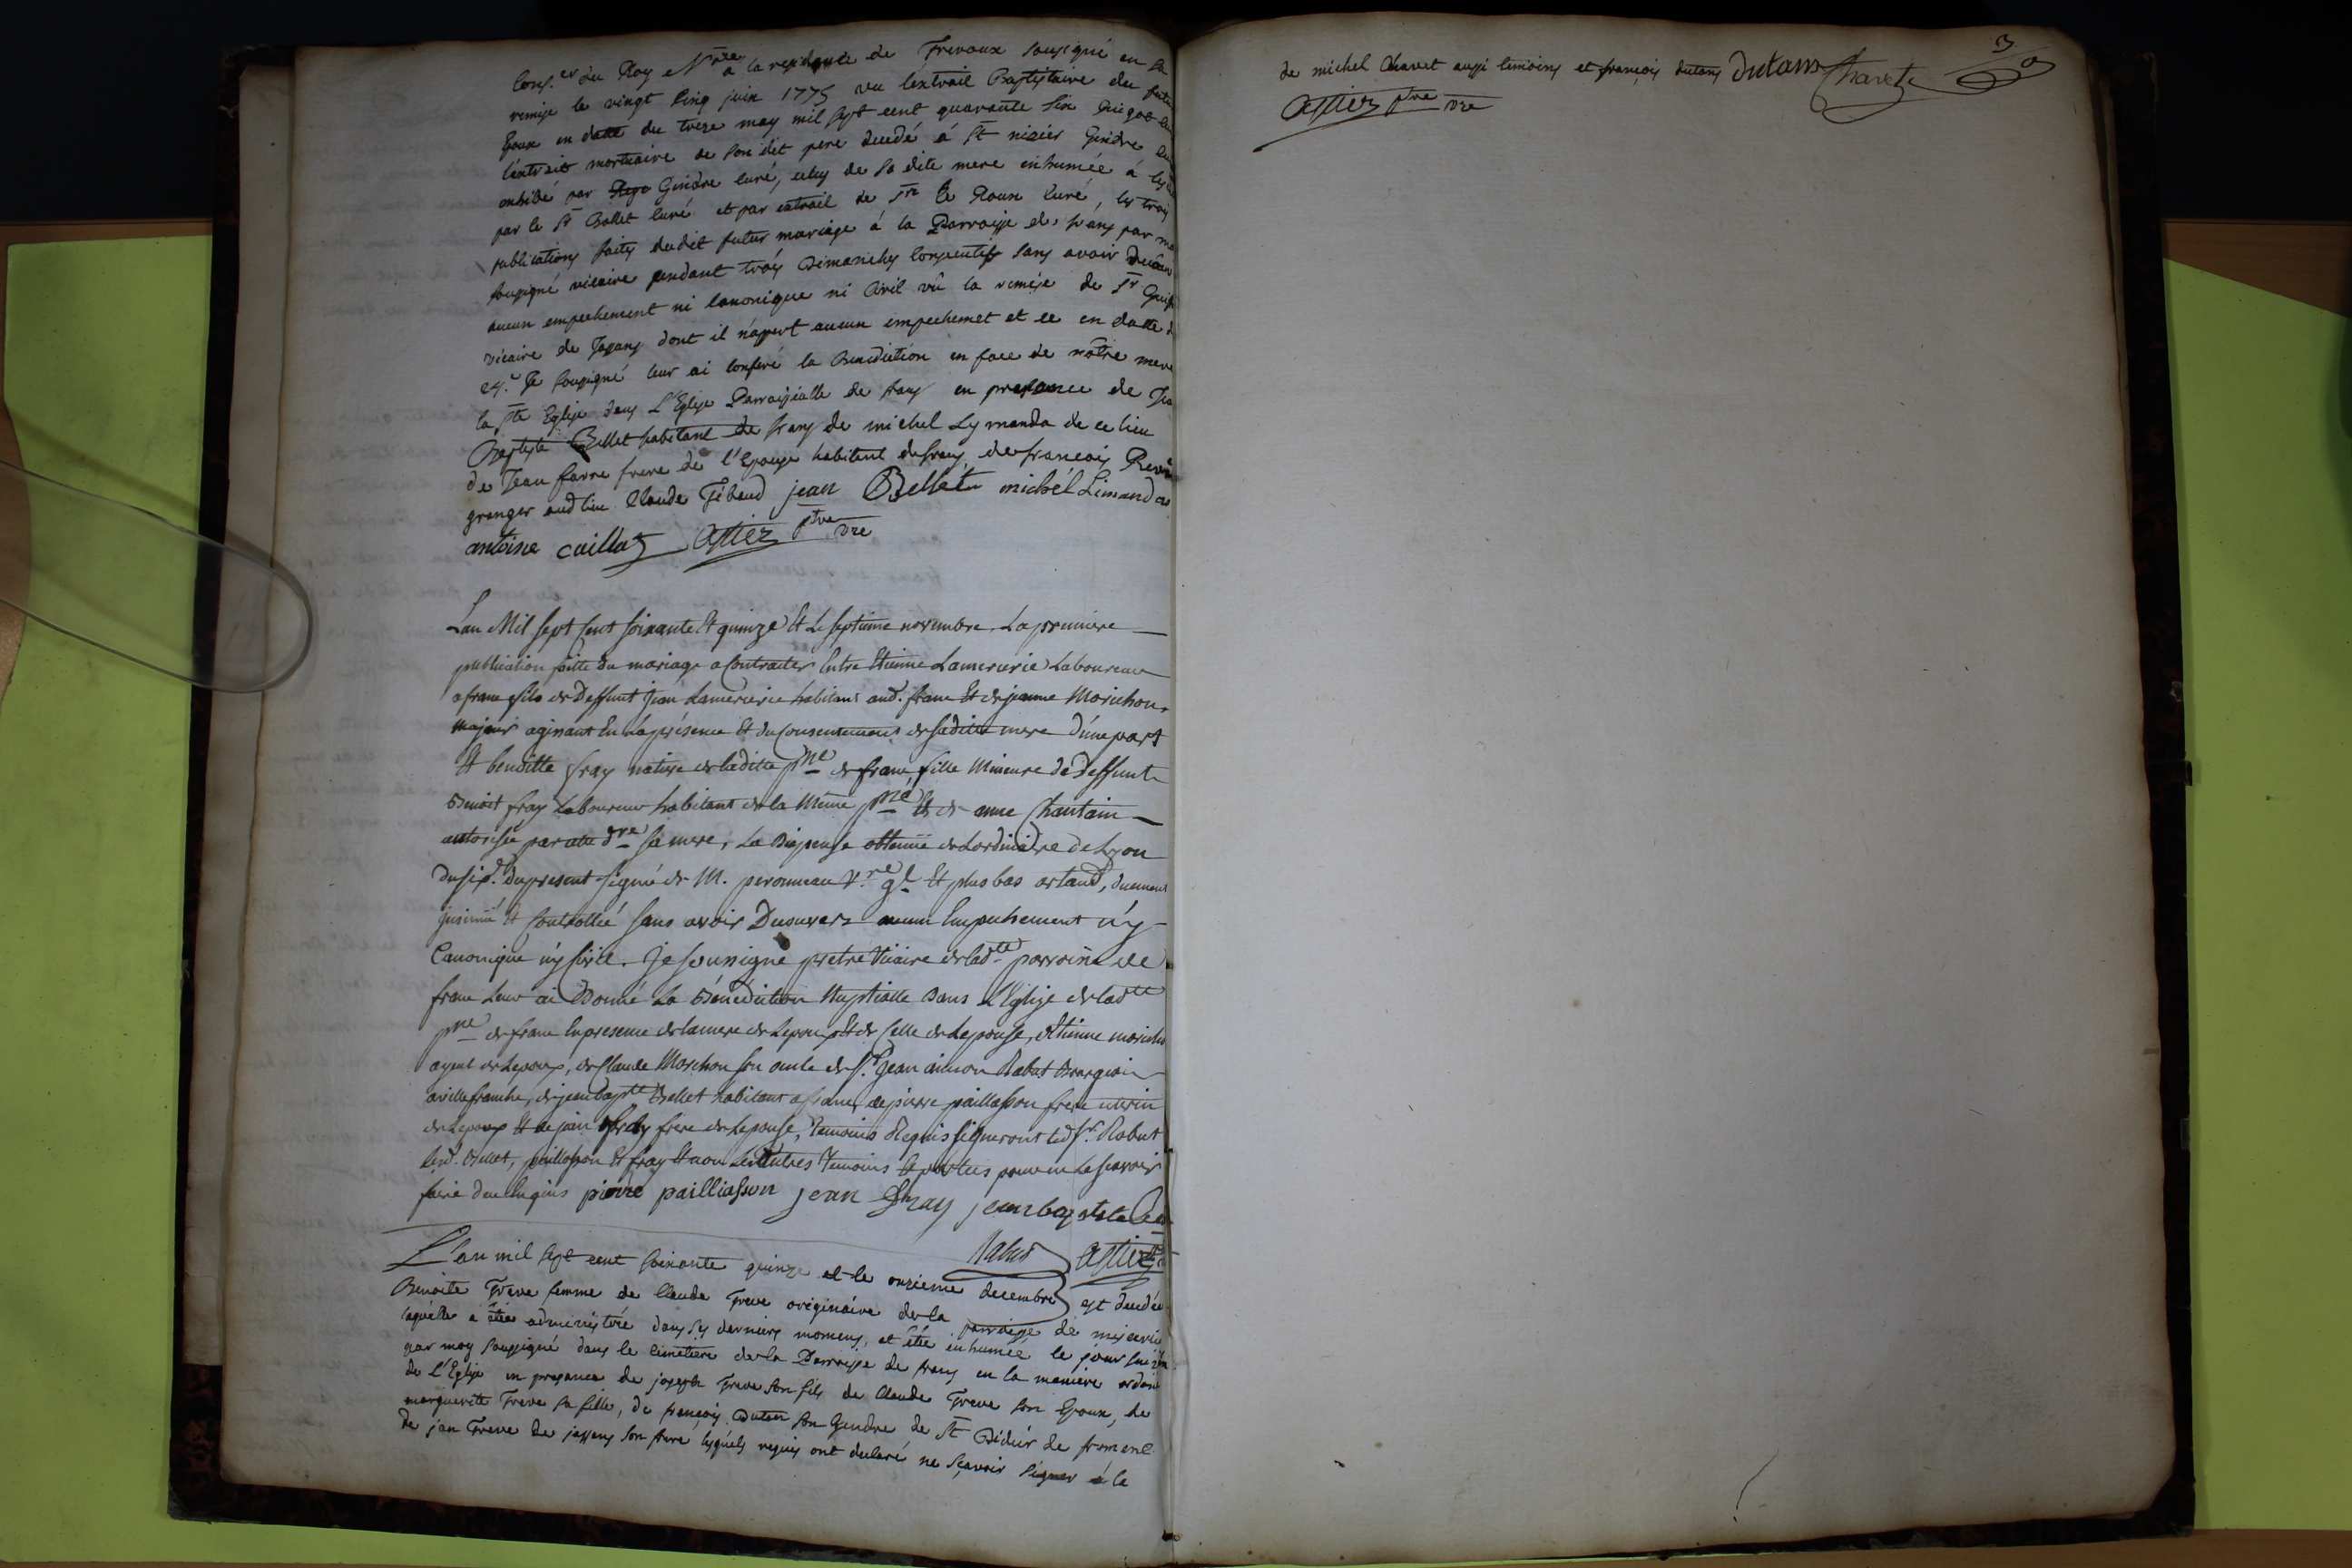 Cons.er du Roy Nre a la residence de Trevoux soussigné en sa
remise le vingt cinq juin 1775 vu lextrait Baptistaire du futur
Epoux en datte du treze may mil sept cent quarante six
l'extrait mortuaire de son dit pere decedé á St nizier Gindre
par Gindre curé, celuy de sa dite mere inhumée á
par le Sr Bollet curé et par extrait de Sr le Roux curé, les trois
publications faites dudit futur mariage á la Parroisse de frans par
soussigné vicaire pendant trois Dimanches consecutifs sans avoir
aucun empechement ni canonique ni Civil vû la remise de Sr
vicaire de dont il n'appert aucun empechemet et ce en datte
Je soussigné leur ai conferé la Benediction en face de nôtre mere
la Ste Eglise dans L'Eglise Parroissialle de frans en presance de
Baptiste Bellet habitant de frans de michel Lymanda de ce lieu
de Jean farre frere de l'Epouse habitant de frans, de francois
granger aud lieu Claude Tibaud jean Bellet michél Limandas
antoine caillat astier ptre vre
Lan Mil sept Cent soixante Et quinze Et Le septieme novembre. La premiere
publication faitte du mariage a Contracter Entre Etienne Lamercerie Laboureur
a franc fils de Deffunt Jean Lamercerie habitant aud. franc Et de jeanne Morichon
majeur agissant En La présence Et du Consentement de saditte mere d'une part
Et benoitte fray native de laditte pne de franc, fille Mineure de Deffunt
Benoit fray Laboureur habitant de la Même pne Et de anne Chantain
autorisée par saditte mere, La Dispense obtenüe de Lordinaire de Lyon
du six.e du present signé de M. peronneau V.re gl Et plus bas ortaud, duement
jnsinüé Et Controllée sans avoir Decouvert aucun Empechement n'y
Canonique n'y Civil. Je soussigné pretre Vicaire de ladtte parroisse de
franc Leur ai Donné La Bénédiction Nuptialle Dans L'Eglise de ladtte
pne de franc En presence de la mere de Lepoux Et de Celle de Lepouse, d'Etienne morichon
ayeul de Lepoux, de Claude Morichon son oncle de Sr. Jean Rabut Bourgeois
a villefranche, de jean baptte Bellet habitant a franc, de pierre paillasson frere uterin
de Lepoux Et de jean fray frere de Lepouse, Temoins Requis signeront led Sr. Rabut
led. Bellet, paillasson Et fray Et non Les autres Temoins ny parties pour ne Le scavoir
faire de ce Enquis pierre pailliasson jean fray jean baptiste
Rabut astier
L'an mil sept cent soixante quinze et le onzieme decembre est decedée
Benoite Treve femme de Claude Treve originaire de la parroisse de
laquélle a étée administrée dans ses derniers momens, et étée inhumée le jour
par moy soussigné dans le cimétiere de la Parroisse de frans en la maniere
de L'Eglise en presance de joseph Treve son fils de Claude Treve son Epoux, de
marguerite Treve sa fille, de françois Dutan son Gendre de St Didier de froment
de jan Treve de jassens son frere lesquels requis ont declaré ne sçavoir signer á la
3
de michel Chavet aussi témoins et françois dutans Dutans Chavet
astier ptre vre